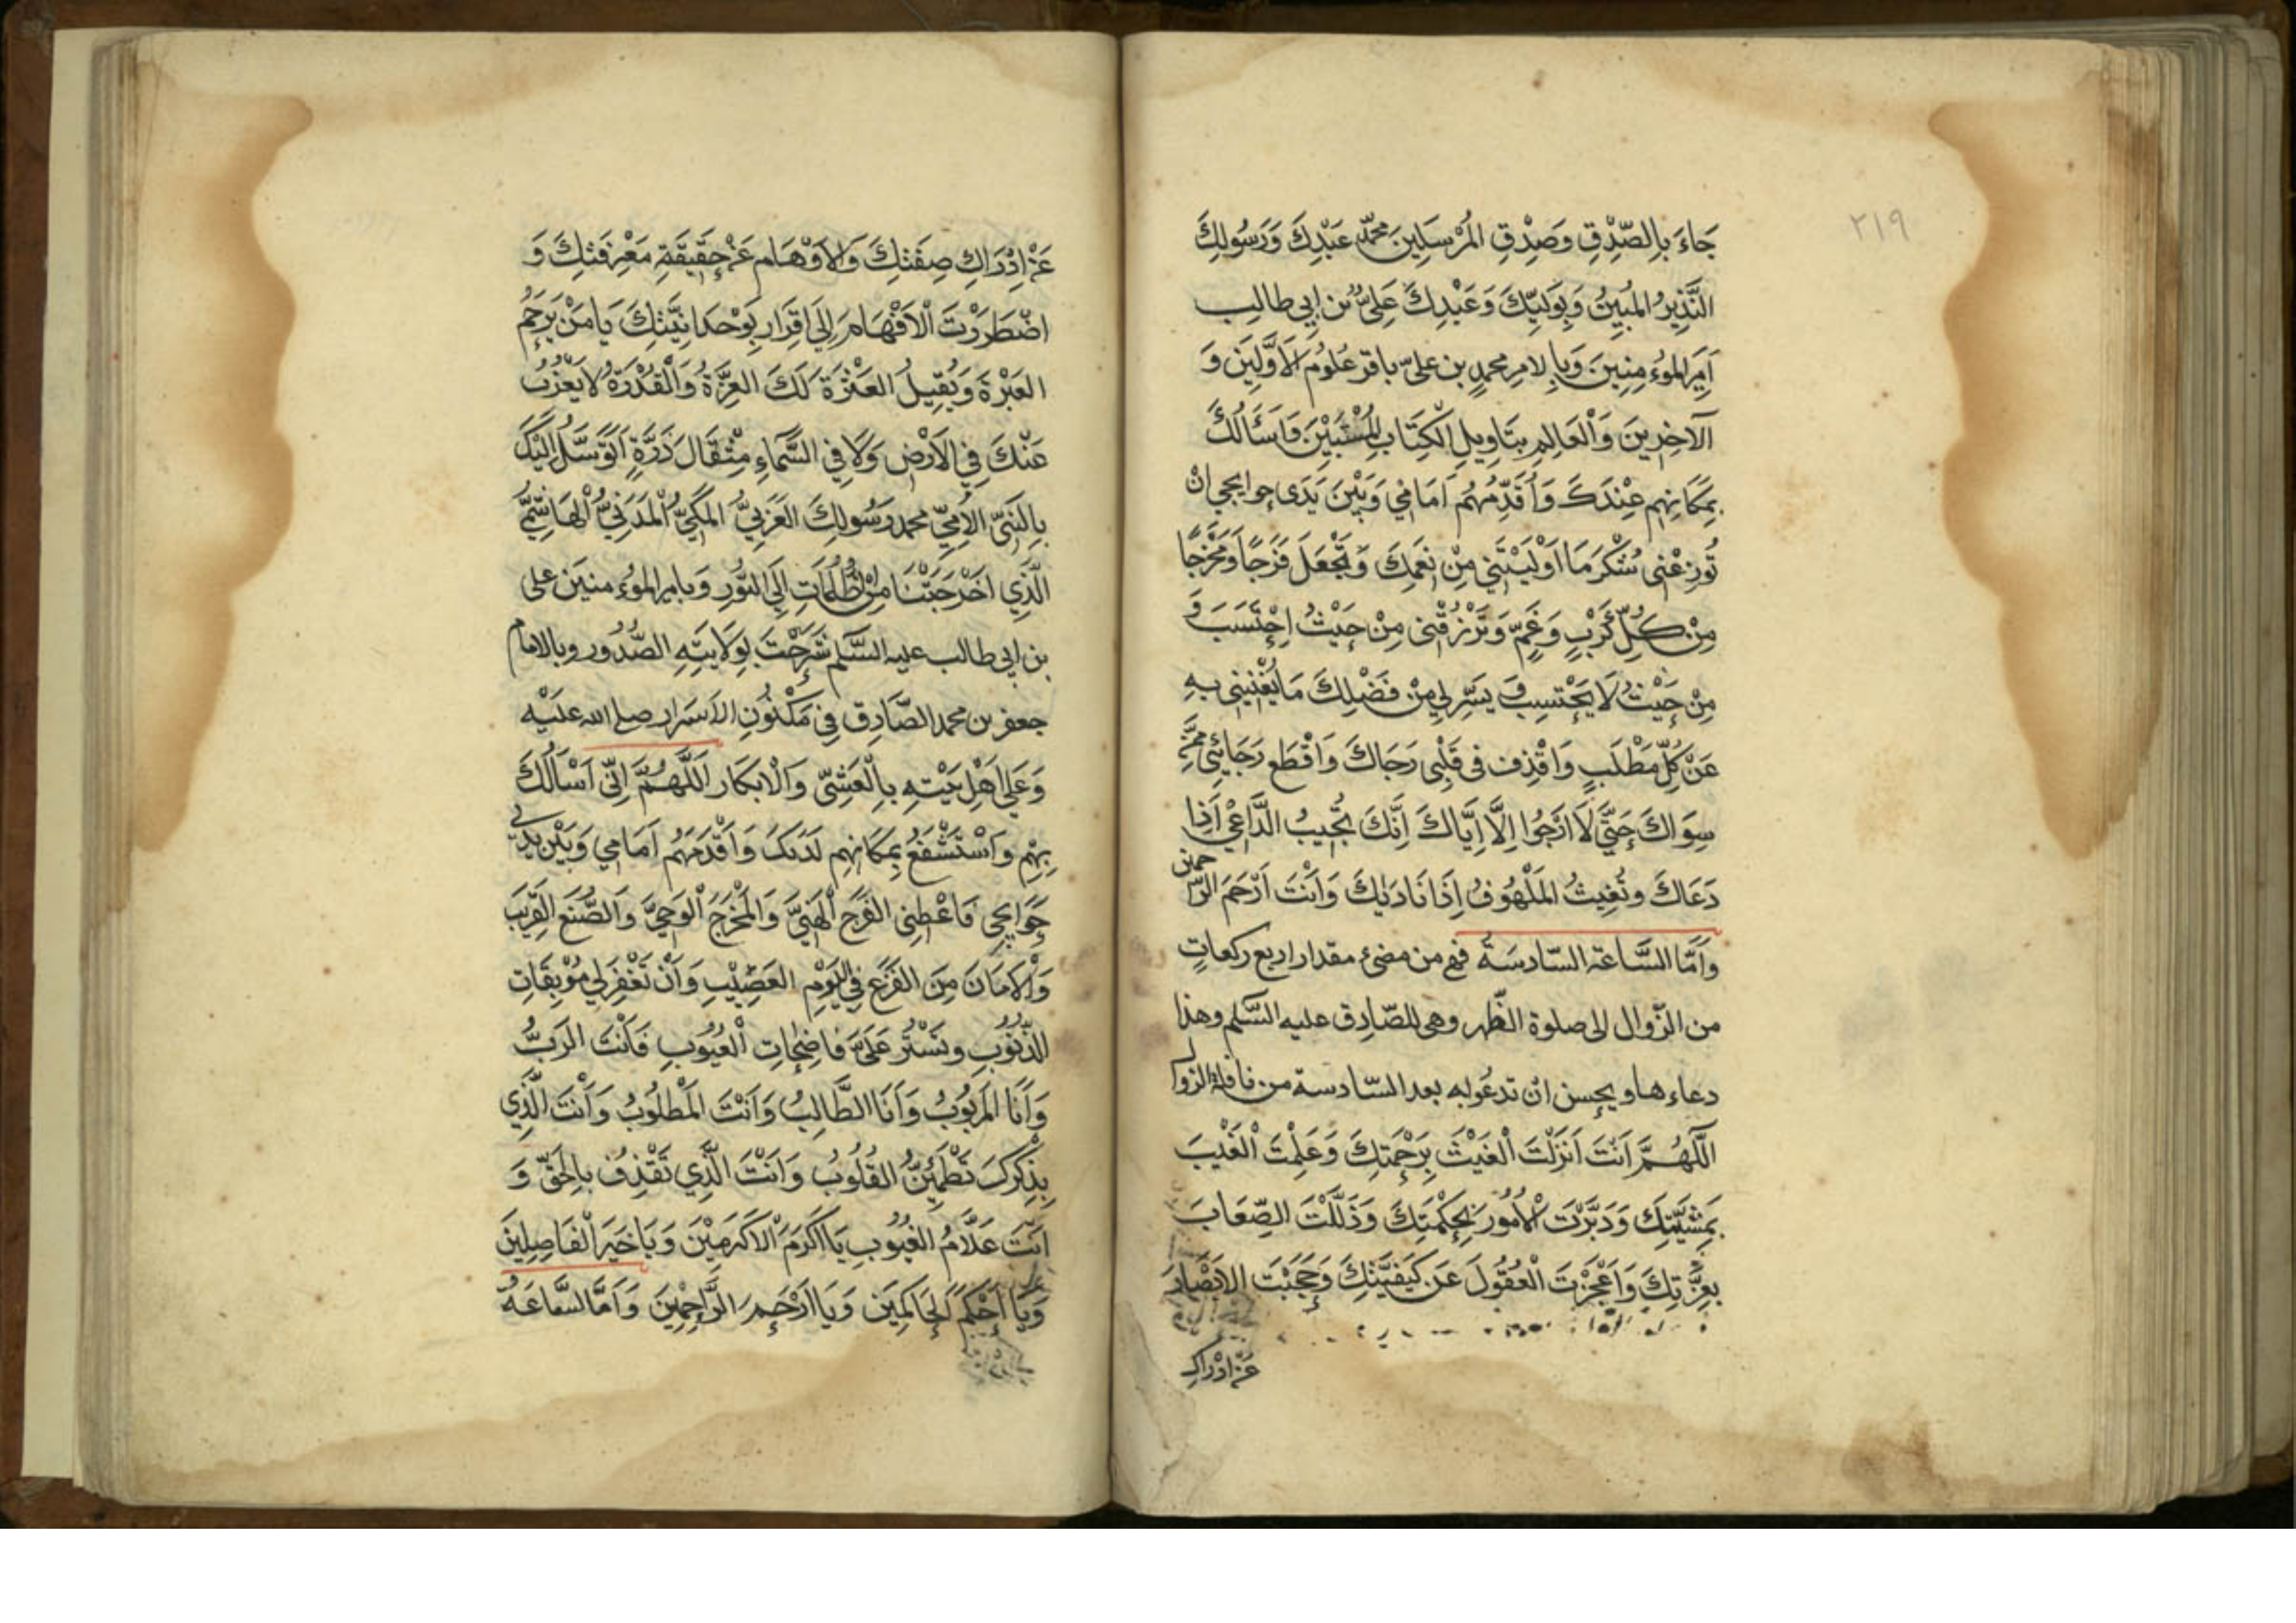 ٢١٩
جَاءَ بِالصِّدْقِ وَصِدْقِ المُرْسَلِينَ محمّدٍ عَبْدِكَ وَرَسُولِكَ
النَّذِيرُ المُبِينُ وَبِوَلِيِّكَ وَعَبْدِكَ عَلِيُّ بْن اَبِي طالِب
اَمِيرَ الموُءمِنِينَ وَبِالامِ محمدٍ بن علىّ باقر عُلُومُ الاَوَّلِينَ وَ
الآخِرِينَ وَالْعَالِمِ بِتَاوِيلِ الْكِتَابِ الْمُسْتَبِيْنَ وَاَسْأَلُكَ
بِمَكَانِهِم عِنْدَكَ وَاُقَدِّمُهُم اَمَامِي وَبَيْنَ يَدَى حوايجي انْ
تُوزِعْنى شُكْرَ مَا اَوْلَيْتَنِي مِنْ نِعَمِكَ وَتَجْعَلَ فَرَجًا وَمَخْرَجًا
مِنْ كُلِّ كَرْبٍ وَغَمٍّ وَتَرْزُقْنِى مِنْ حَيْثُ اِحْتَسَبَ وَ
مِنْ حَيْثُ لَا يَحْتسِب وَ يَسِّرِلي مِنْ فَضْلِكَ مَا يُغْنِينِى بِهِ
عَنْ كُلِّ مَطْلَبٍ وَاقْذِف فى قَلْبِى رَجَاكَ وَاقْطَع رَجَائِي مِمَّنْ
سِوَاكَ حَتَّى لَا اَرْجُوا اِلَّا اِيَّاكَ اِنَّكَ تُجِيبُ الدَّاعِي اَذِا
دَعَاكَ وتُغِيثُ المَلْهُوفُ اِذَا نَادَيٰكَ وَاَنْتَ اَرْحَمَ الرّاحمين
وَاَمَّا السَّاعة السّادسَةُ فهى من مضىِّ مقدار اربع ركعاتٍ
من الزّوال الى صلوة الظّهر وهى للصّادق عليه السَّلم وهذا
دعاءها ويحسن ان تدعُوا به بعد السّادسة من نافلة الزوال
اَللّهُمَّ اَنْتَ اَنْزَلْتَ الْغَيْثَ بِرَحْمَتِكَ وَعَلِمْتَ الْغَيْبَ
بِمَشِيَّتِكَ وَدَبَّرْتَ الْاُمُورَ بِحِكْمَتِكَ وَذَلَّلْتَ الصِّعَابَ
بعِزَّتِكَ وَاَعْجَزْتَ الْعُقُولَ عَن كَيْفِيَّتِكَ وَحَجَبْتَ الابْصَارَ
عَنْ اِدْرَاكِ
عَنْ اِدْرَاكِ صِفَتِكَ وَالاَوْهَام عَنْ حَقِيقَةِ مَعْرِفَتِكَ وَ
اضْطَرَرْتَ الْاَفْهَامَ اِلَى اِقِرَارِ بِوَحدَانِيَّتِكَ يَا مَنْ يَرحَمُ
العَبْرَةَ وَيُقِيلُ العَثْرَةَ لَكَ العِزَّةُ وَالْقُدْرَةُ لا يَعْزُبُ
عَنْكَ فِي الاَرْضِ وَلَا فِي السَّمَاءِ مِثْقَالَ ذَرَّةٍ اَتَوَسَّلُ اِلَيْكَ
بِالنَّبِيّ الاُمِّيّ محمد رَسُولِكَ العَرَبِيُّ المَكِّيُّ الْمَدَنِيُّ الْهَاشِمِّيُّ
الَّذِي اَخْرَجْتَنَا مِنَ الظُّلُمَاتِ اِلَى النُّورِ وَبامير الموُءمنينَ على
بن ابي طالب عليه السَّلم شَرَحْتَ بِوَلَايَتِهِ الصُّدُور وبالامام
جعفر بن محمد الصَّادِق فِى مَكْنُونِ الاَسْرَار صلى الله عليه
وَعَلَى اَهْلِ بَيْتِهِ بِالْعَشِيّ وَالْابكَار اَللَّهُمَّ اِنِّى اَسْالُكَ
بِهِم وَاَسْتَشْفَعُ بِمَكَانِهِم لَدَيكَ وَاُقدّمَهُم اَمَامِي وَبَيْن يَدَيّ
حَوَايجى فَاعْطِنِى الفَرَج الْهَنِيَّ وَالمَخْرَجَ الْوَحِيَّ وَالصُّنْعَ الْقَرِيبَ
وَالْاَمَانَ مِنَ الفَزَعِ فِي اليَوْمِ العَصِيْبِ وَاَنْ تَغْفِرَ لِي مُوْبِقَاتِ
الذُّنُوبِ وتَسْتُر عَلَىَّ فَاضِحَاتِ الْعُيُوبِ فَاَنْتَ الرَّبُّ
وَاَنَا المَرْبُوبُ وَاَنَا الطَّالِبُ وَاَنْتَ المَطْلُوبُ وَاَنْتَ الَّذِي
بِذِكْرِكَ تَطْمَئِنُّ القُلُوبُ وَاَنْتَ الَّذِي تَقْذِفُ بِالحَقِّ وَ
اَنْتَ عَلَّامُ الغُيُوبِ يَا اَكْرَمَ الْاَكْرَمِيْنَ وَيَا خَيْرَ الْفَاصِلِينَ
وَيَا اَحْكَمَ الْحَاكِمِيَن وَيَا اَرْحَمَ الرَّاحِمِيْنَ وَاَمَّا السَّاعَةُ